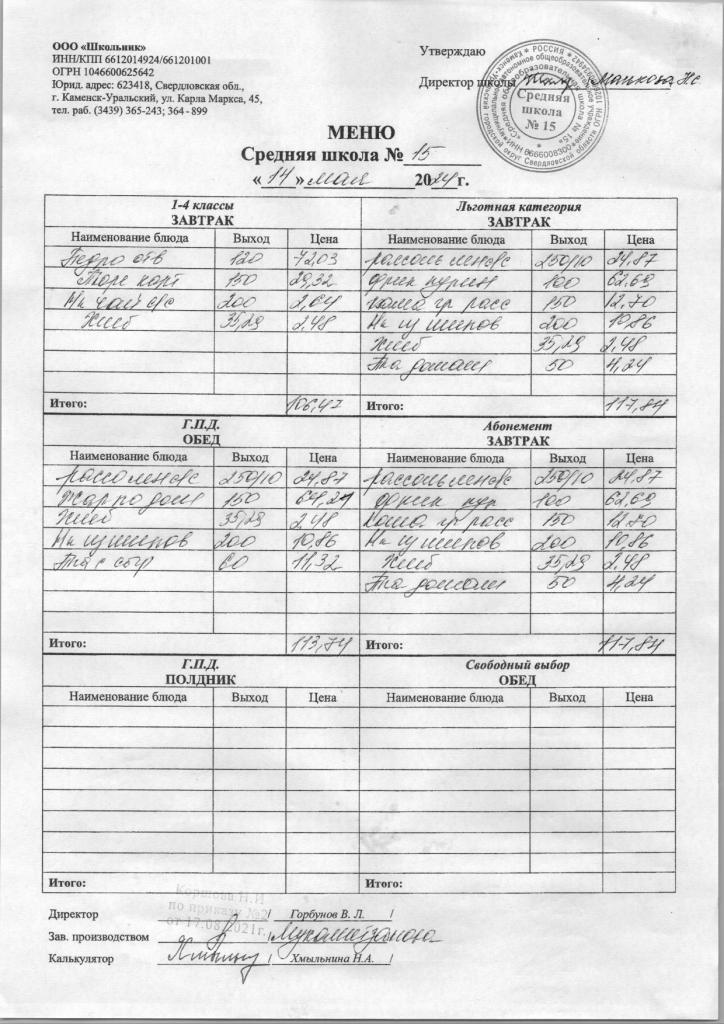 ООО «Школьник»
ИНН/КПП 6612014924/661201001
ОГРН 1046600625642
Юрид. адрес: 623418, Свердловская обл.,
г. Каменск-Уральский, ул. Карла Маркса, 45,
тел. раб. (3439) 365-243; 364 - 899
Утверждаю
Директор школы
Средняя
школа
№ 15
МЕНЮ
Средняя школа № 15
« 14 » мая 2024 г.
1-4 классы
ЗАВТРАК
Наименование блюда Выход Цена
Бедро отв 120 72,03
Пюре карт 150 29,32
Н-к чай с/с 200 2,64
Хлеб 35,29 2,48
Итого: 106,47
Льготная категория
ЗАВТРАК
Наименование блюда Выход Цена
250/10 24,87
100 62,69
каша гр расс 150 12,70
200 10,86
Хлеб 35,29 2,48
50 4,24
Итого: 117,84
Г.П.Д.
ОБЕД
Наименование блюда Выход Цена
250/10 24,87
Жар по дом 150 64,21
Хлеб 35,29 2,48
200 10,86
с сыр 60 11,32
Итого: 113,74
Абонемент
ЗАВТРАК
Наименование блюда Выход Цена
250/10 24,87
100 62,69
Каша гр расс 150 12,70
200 10,86
Хлеб 35,29 2,48
50 4,24
Итого: 117,84
Г.П.Д.
ПОЛДНИК
Наименование блюда Выход Цена
Итого:
Свободный выбор
ОБЕД
Наименование блюда Выход Цена
Итого:
Коршова Н.И
по приказу №2
от 17.08.2021г.
Директор / Горбунов В. Л. /
Зав. производством
Калькулятор / Хмыльнина Н.А. /